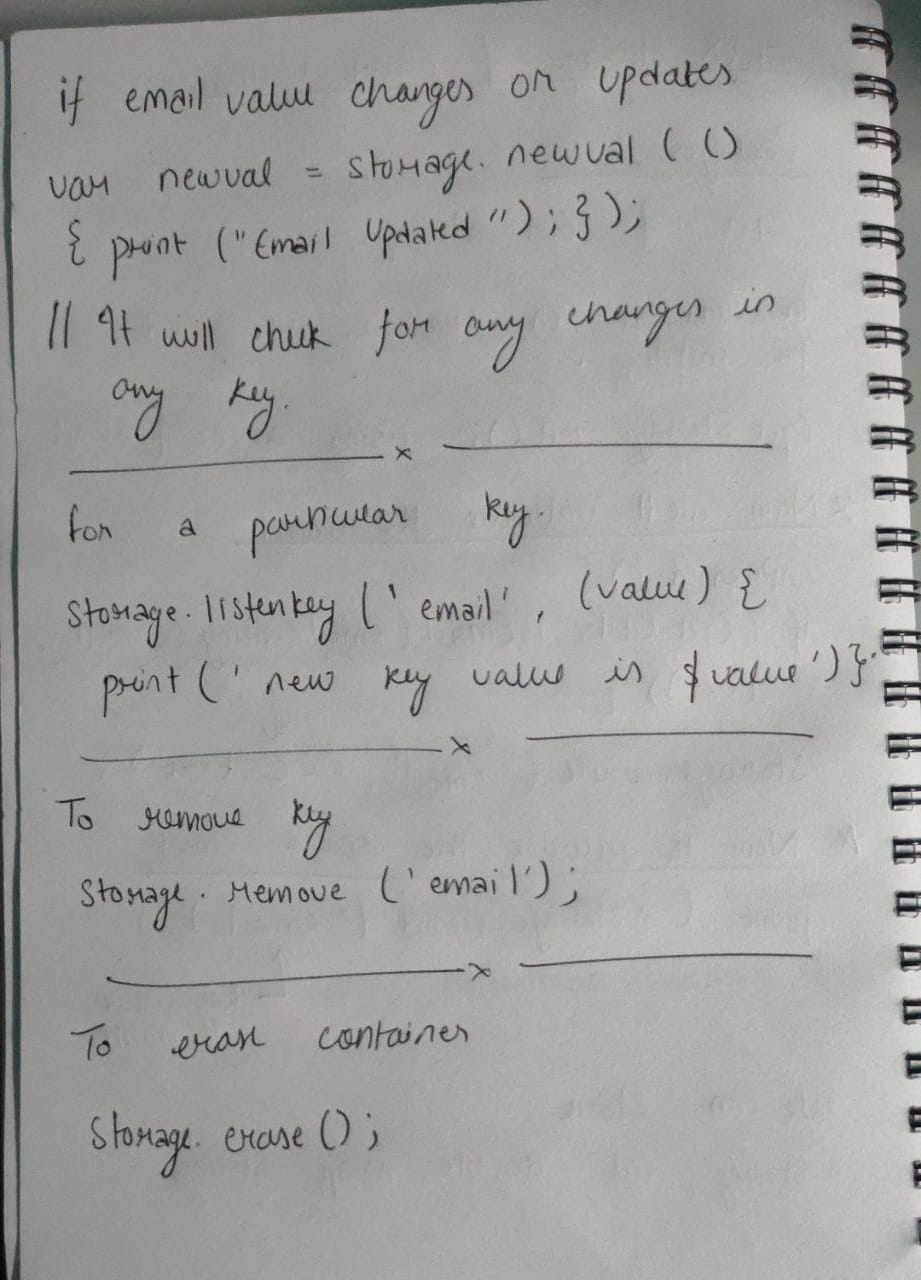 if email value changes or updates
var newval = storage. newval ( ()
{ print ("Email Updated"); });
// It will check for any changes in
any key.
x
for a particular key.
storage. listenkey ('email', (value) {
print ('new key value is $value')}
x
To remove key
storage. remove ('email');
x
To erase container
storage. erase ();